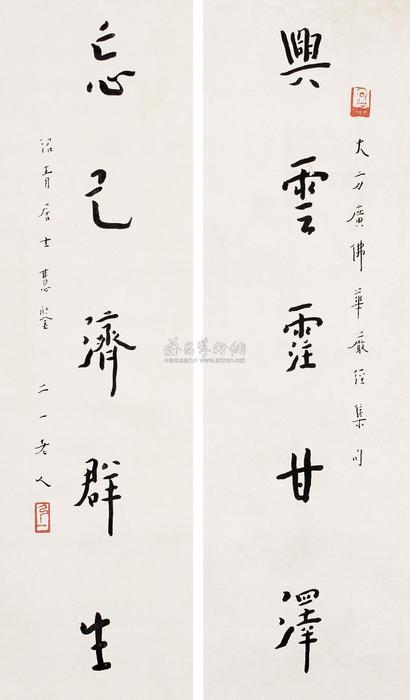 大方廣佛華嚴經集句
興雲霔甘澤
忘己濟群生
青居士慧鑒 二一老人
雅昌藝術網
www.artron.net